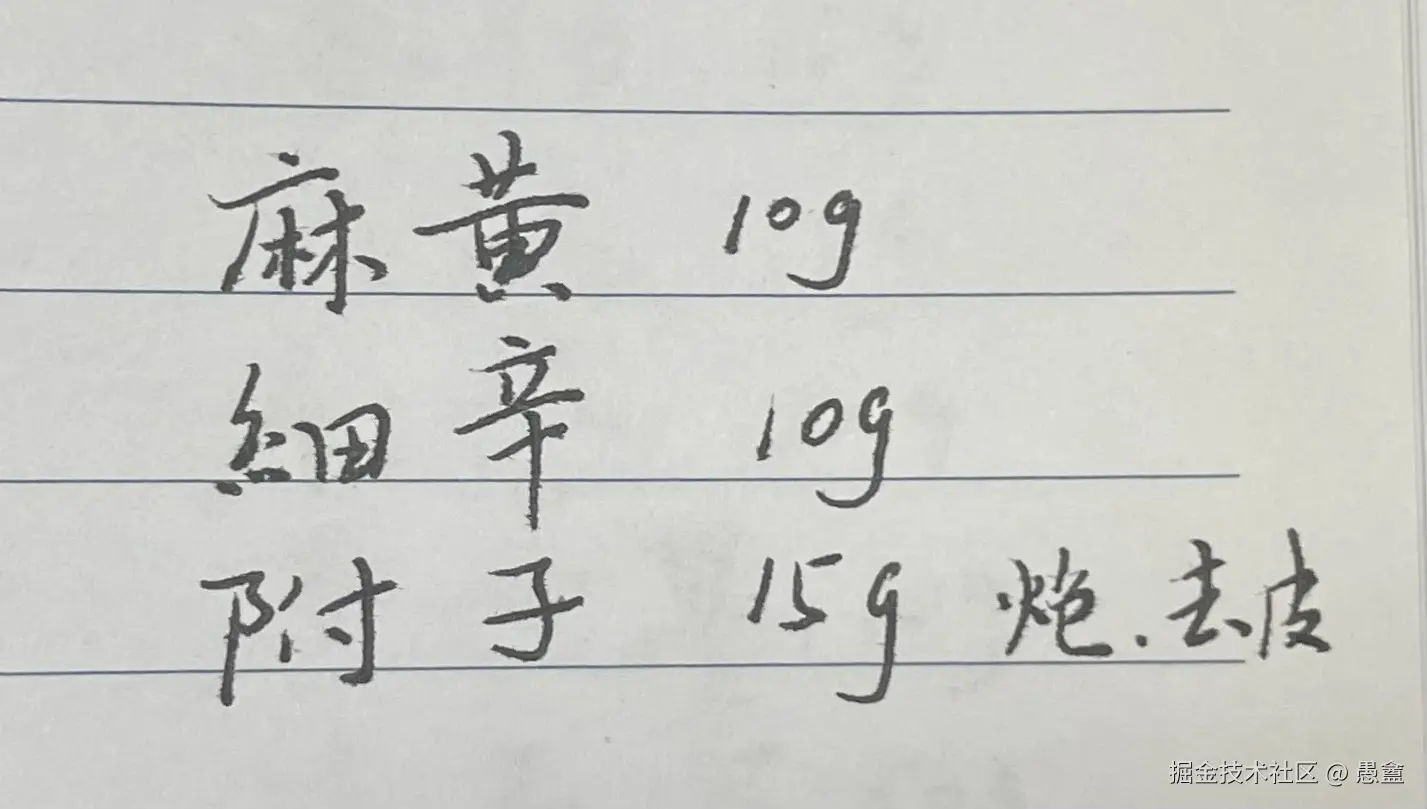 麻黄 10g
細辛 10g
附子 15g 炮、去皮
掘金技术社区 @ 愚盦